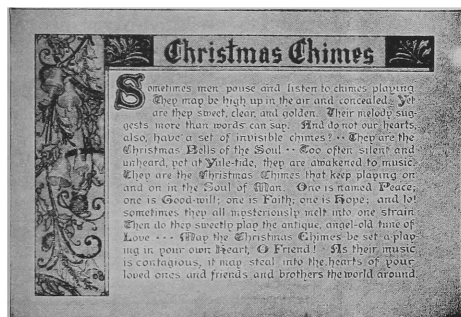 Christmas Chimes
Sometimes men pause and listen to chimes playing
They may be high up in the air and concealed. Yet
are they sweet, clear, and golden. Their melody sug-
gests more than words can say. And do not our hearts,
also, have a set of invisible chimes? ·· They are the
Christmas Bells of the Soul ·· Too often silent and
unheard, yet at Yule-tide, they are awakened to music.
They are the Christmas Chimes that keep playing on
and on in the Soul of Man. One is named Peace;
one is Good-will; one is Faith; one is Hope; and lo!
sometimes they all mysteriously melt into one strain
Then do they sweetly play the antique, angel-old tune of
Love ··· May the Christmas Chimes be set a-play
ing in your own Heart, O Friend! As their music
is contagious, it may steal into the hearts of your
loved ones and friends and brothers the world around.